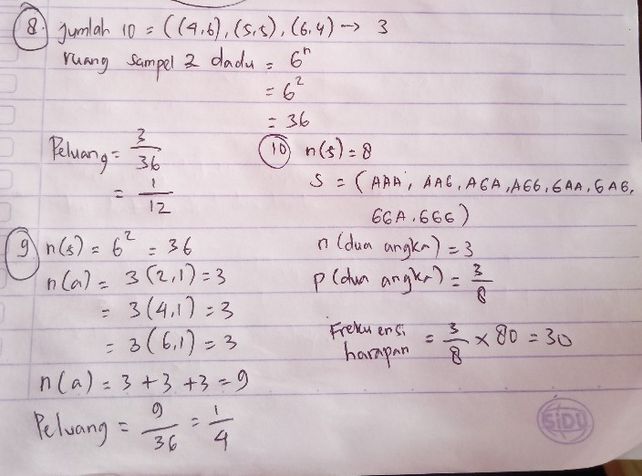 8. Jumlah 10 = ((4,6), (5,5), (6,4) → 3
ruang sampel 2 dadu = 6ⁿ
= 6²
= 36
Peluang = 3/36
= 1/12
9 n(s) = 6² = 36
n(a) = 3(2,1) = 3
= 3(4,1) = 3
= 3(6,1) = 3
n(a) = 3 + 3 + 3 = 9
Peluang = 9/36 = 1/4
10 n(s) = 8
S = (AAA, AAG, AGA, AGG, GAA, GAG,
GGA, GGG)
n(dua angka) = 3
p(dua angka) = 3/8
Frekuensi harapan = 3/8 × 80 = 30
SiDU